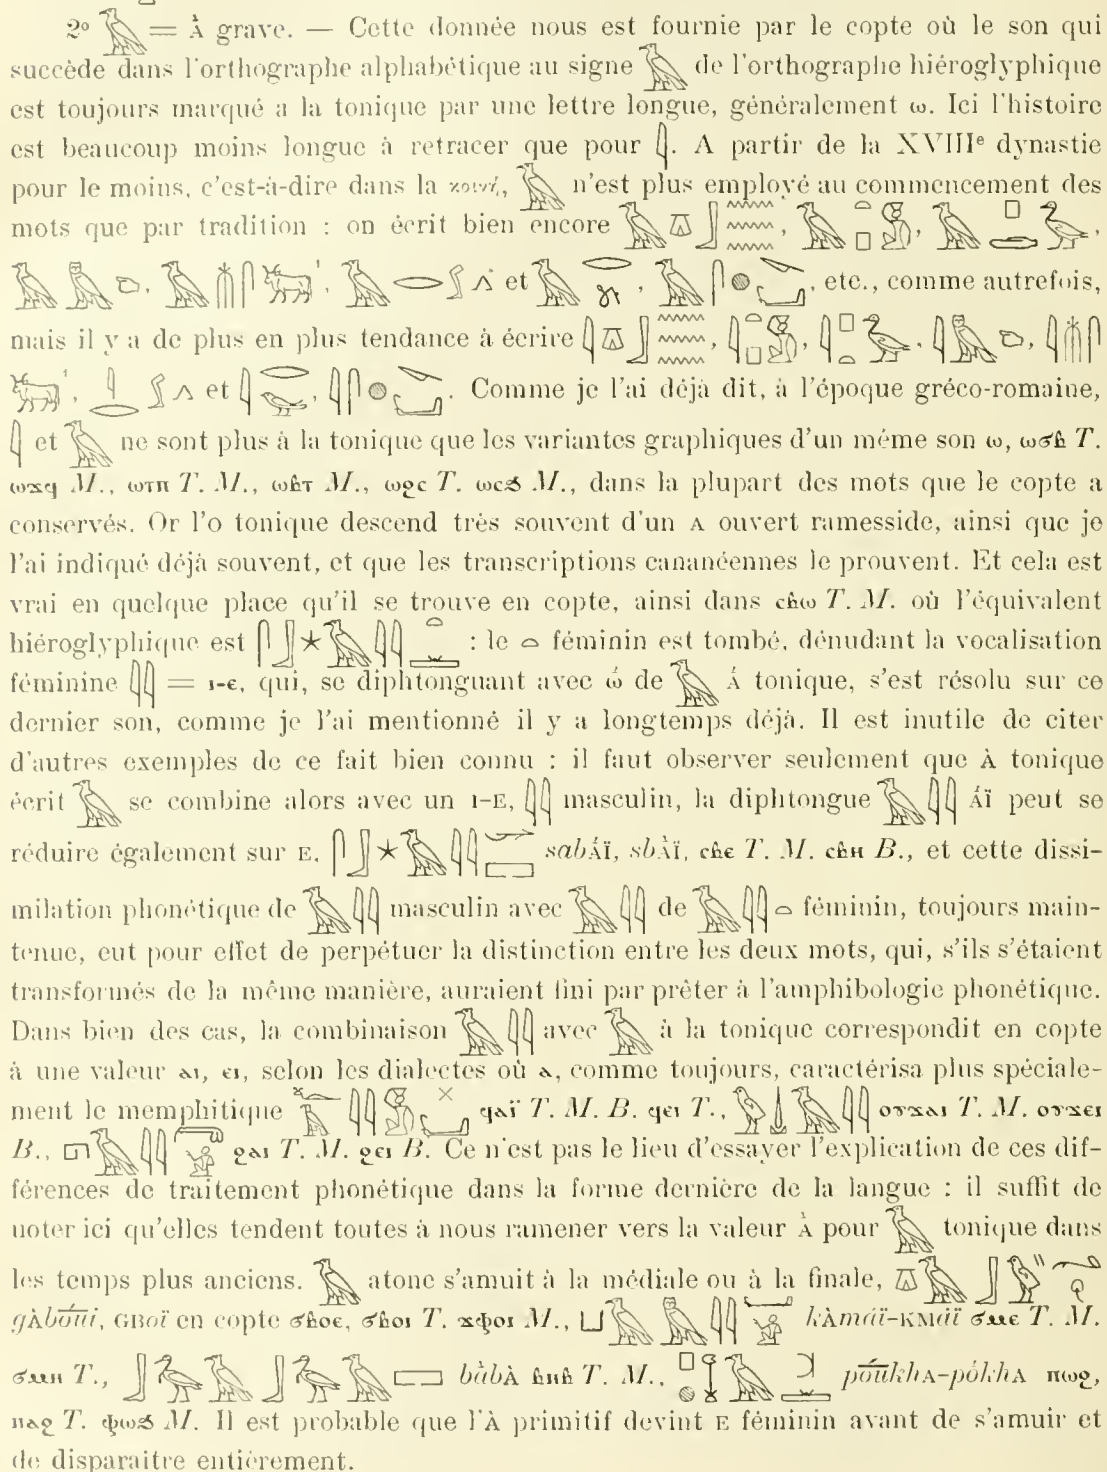 2° 𓄿 = À grave. — Cette donnée nous est fournie par le copte où le son qui
succède dans l'orthographe alphabétique au signe 𓄿 de l'orthographe hiéroglyphique
est toujours marqué a la tonique par une lettre longue, généralement ω. Ici l'histoire
est beaucoup moins longue à retracer que pour 𓇋. A partir de la XVIIIᵉ dynastie
pour le moins, c'est-à-dire dans la κοινή, 𓄿 n'est plus employé au commencement des
mots que par tradition : on écrit bien encore
et , etc., comme autrefois,
mais il y a de plus en plus tendance à écrire
et . Comme je l'ai déjà dit, à l'époque gréco-romaine,
𓇋 et 𓄿 ne sont plus à la tonique que les variantes graphiques d'un même son ω, ⲱϭⲃ T.
ⲱϫϥ M., ⲱⲧⲡ T. M., ⲱⲃⲧ M., ⲱϩⲥ T. ⲱⲥϧ M., dans la plupart des mots que le copte a
conservés. Or l'o tonique descend très souvent d'un A ouvert ramesside, ainsi que je
l'ai indiqué déjà souvent, et que les transcriptions cananéennes le prouvent. Et cela est
vrai en quelque place qu'il se trouve en copte, ainsi dans ⲥⲃⲱ T. M. où l'équivalent
hiéroglyphique est : le 𓏏 féminin est tombé, dénudant la vocalisation
féminine 𓇋𓇋 = ⲓ-ⲉ, qui, se diphtonguant avec ώ de 𓄿 Á tonique, s'est résolu sur ce
dernier son, comme je l'ai mentionné il y a longtemps déjà. Il est inutile de citer
d'autres exemples de ce fait bien connu : il faut observer seulement que À tonique
écrit 𓄿 se combine alors avec un I-E, 𓇋𓇋 masculin, la diphtongue 𓄿𓇋𓇋 ÁÏ peut se
réduire également sur E, sabÁÏ, sbÀÏ, ⲥⲃⲉ T. M. ⲥⲃⲏ B., et cette dissi-
milation phonétique de 𓄿𓇋𓇋 masculin avec 𓄿𓇋𓇋 de 𓄿𓇋𓇋𓏏 féminin, toujours main-
tenue, eut pour effet de perpétuer la distinction entre les deux mots, qui, s'ils s'étaient
transformés de la même manière, auraient fini par prêter à l'amphibologie phonétique.
Dans bien des cas, la combinaison 𓄿𓇋𓇋 avec 𓄿 à la tonique correspondit en copte
à une valeur ⲁⲓ, ⲉⲓ, selon les dialectes où ⲁ, comme toujours, caractérisa plus spéciale-
ment le memphitique ϥⲁⲓ̈ T. M. B. ϥⲉⲓ T., ⲟⲩϫⲁⲓ T. M. ⲟⲩϫⲉⲓ
B., ϩⲁⲓ T. M. ϩⲉⲓ B. Ce n'est pas le lieu d'essayer l'explication de ces dif-
férences de traitement phonétique dans la forme dernière de la langue : il suffit de
noter ici qu'elles tendent toutes à nous ramener vers la valeur À pour 𓄿 tonique dans
les temps plus anciens. 𓄿 atone s'amuit à la médiale ou à la finale,
en copte ϭⲃⲟⲉ, ϭⲃⲟⲓ T. ϫⲫⲟⲓ M., kAmáï-KMáï ϭⲙⲉ T. M.
ϭⲙⲏ T., bàbÀ ⲃⲏⲃ T. M., ⲡⲱϩ,
ⲡⲁϩ T. ⲫⲱϧ M. Il est probable que l'À primitif devint E féminin avant de s'amuir et
de disparaitre entièrement.